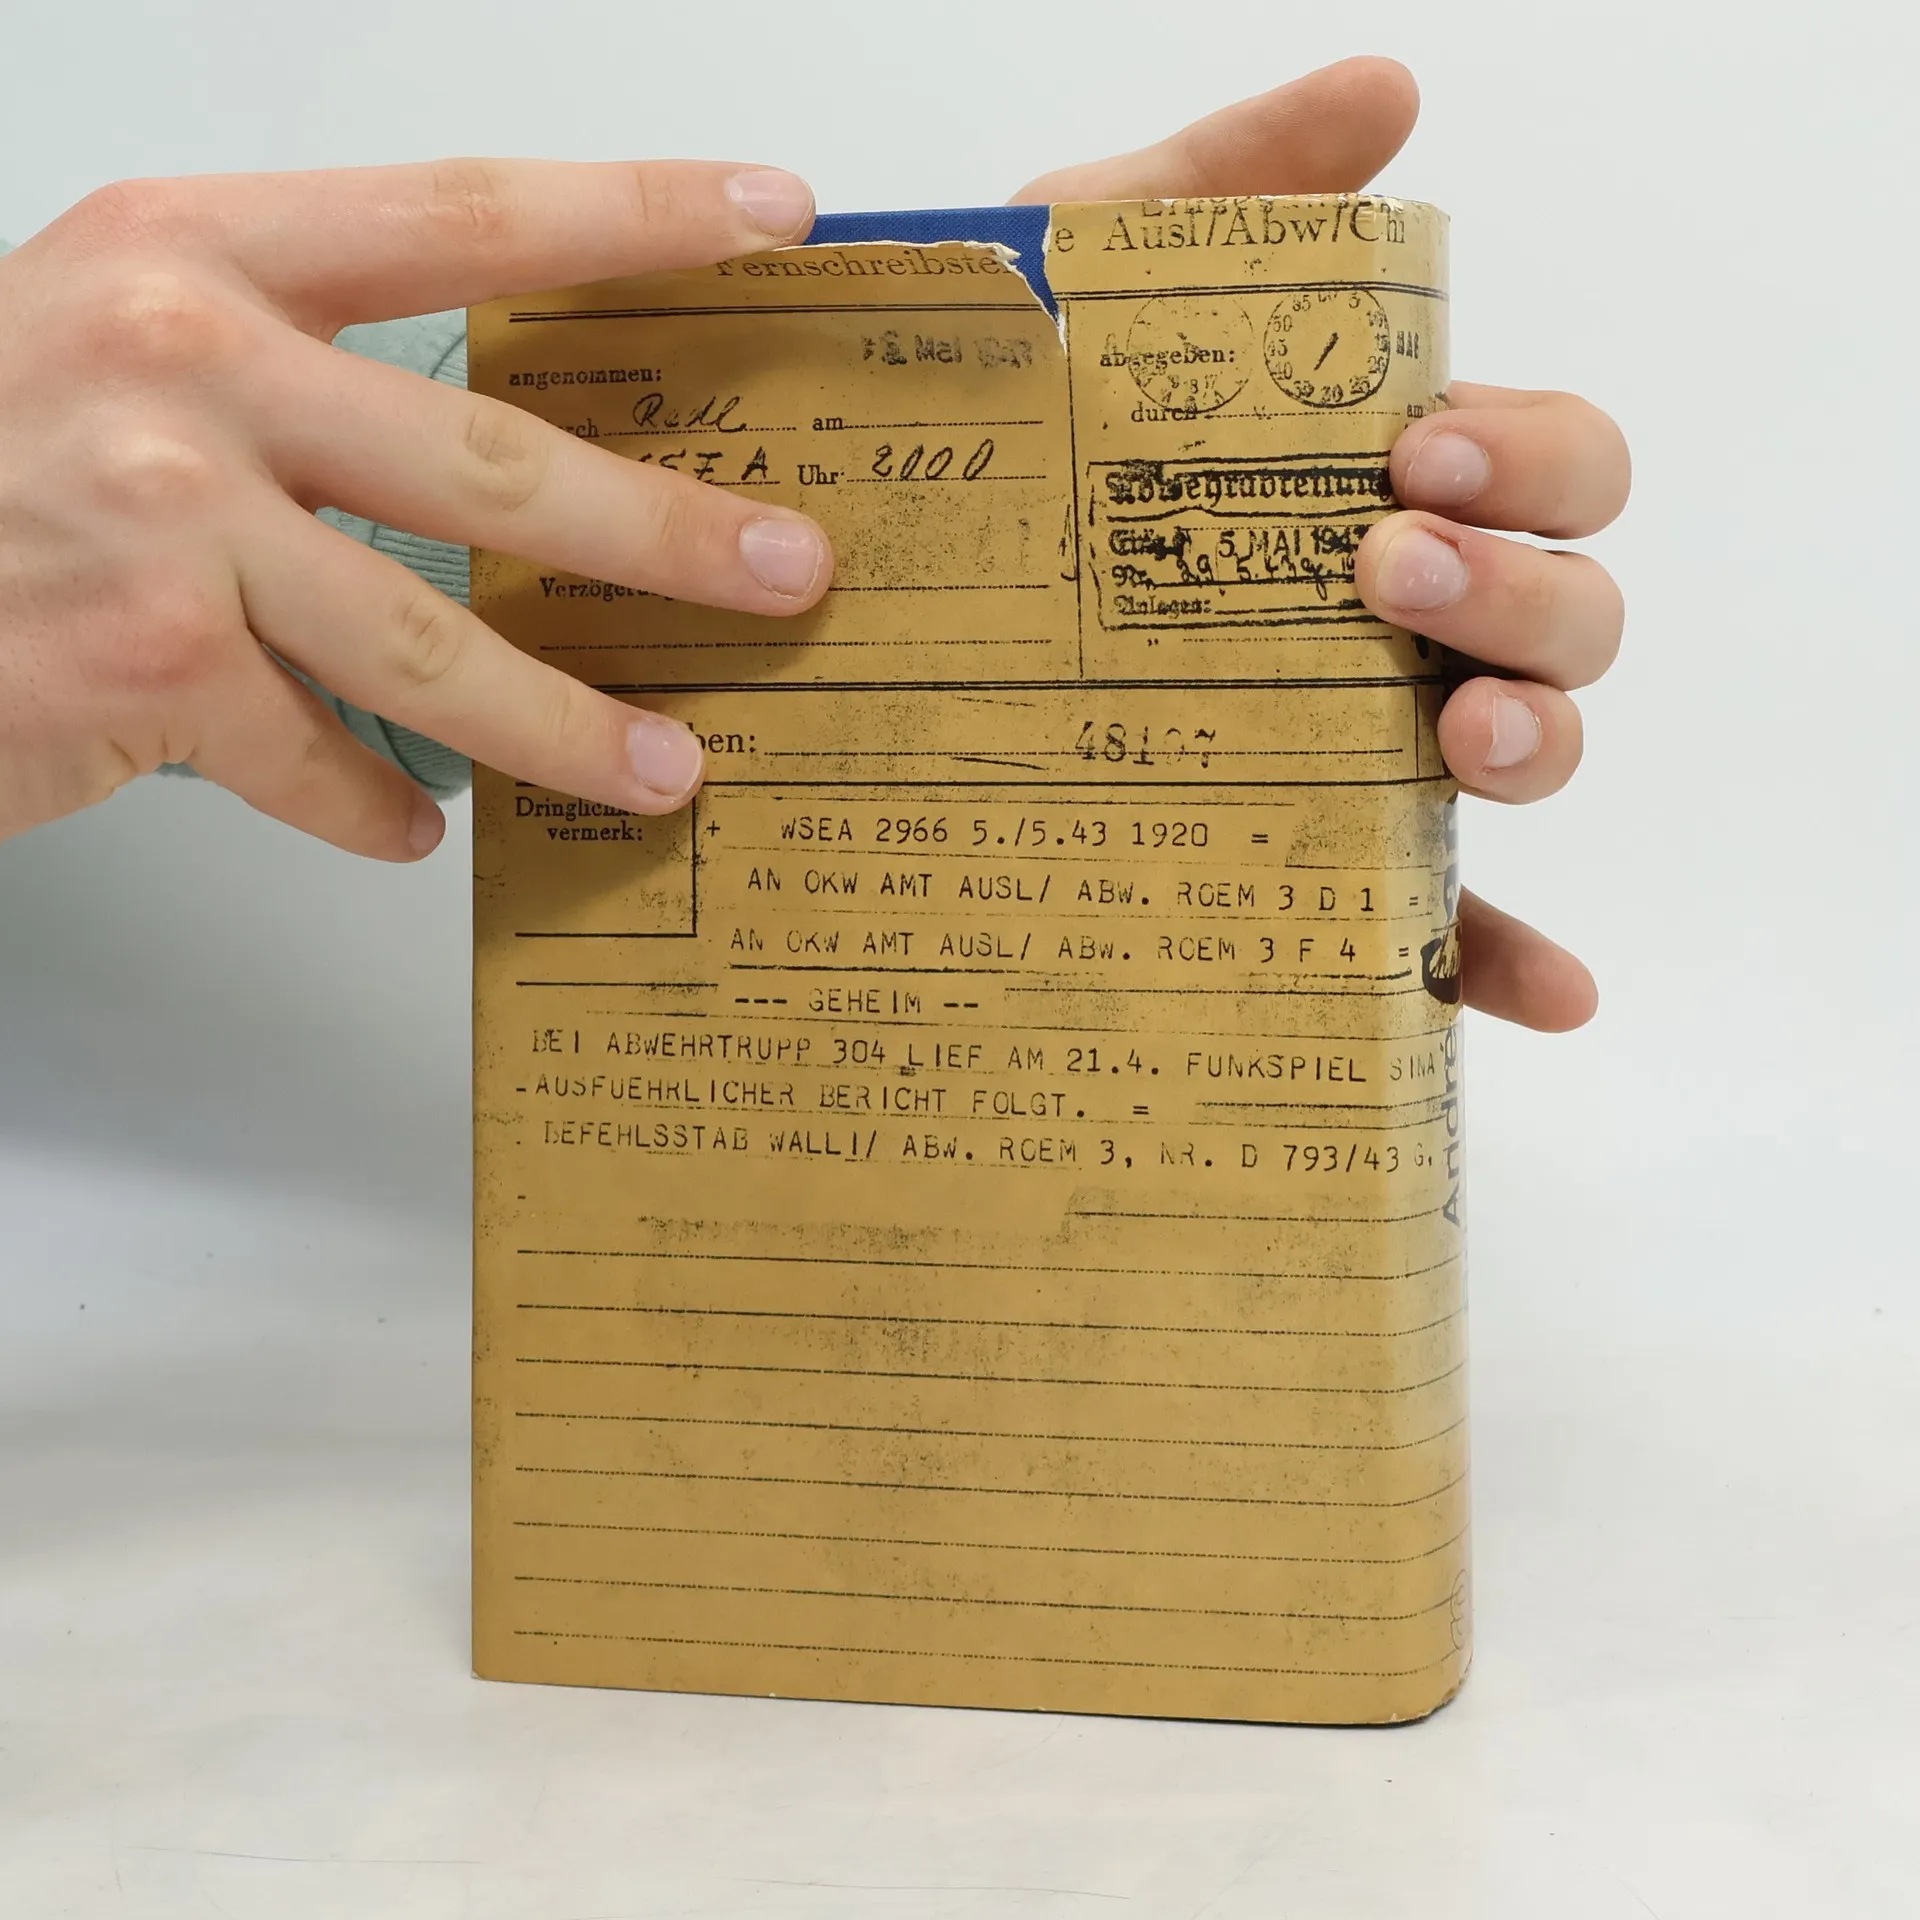 Fernschreibste e Ausl/Abw/Chi
angenommen:
am
Uhr 2000
Verzögerung
abgegeben:
durch am
5. MAI 194
Einlagen:
ben: 48107
Dringlichk
vermerk:
+ WSEA 2966 5./5.43 1920 =
AN OKW AMT AUSL/ ABW. ROEM 3 D 1 =
AN OKW AMT AUSL/ ABW. ROEM 3 F 4 =
--- GEHEIM --
BEI ABWEHRTRUPP 304 LIEF AM 21.4. FUNKSPIEL SINA
-AUSFUEHRLICHER BERICHT FOLGT. =
BEFEHLSSTAB WALLI/ ABW. ROEM 3, NR. D 793/43 G.
Andre